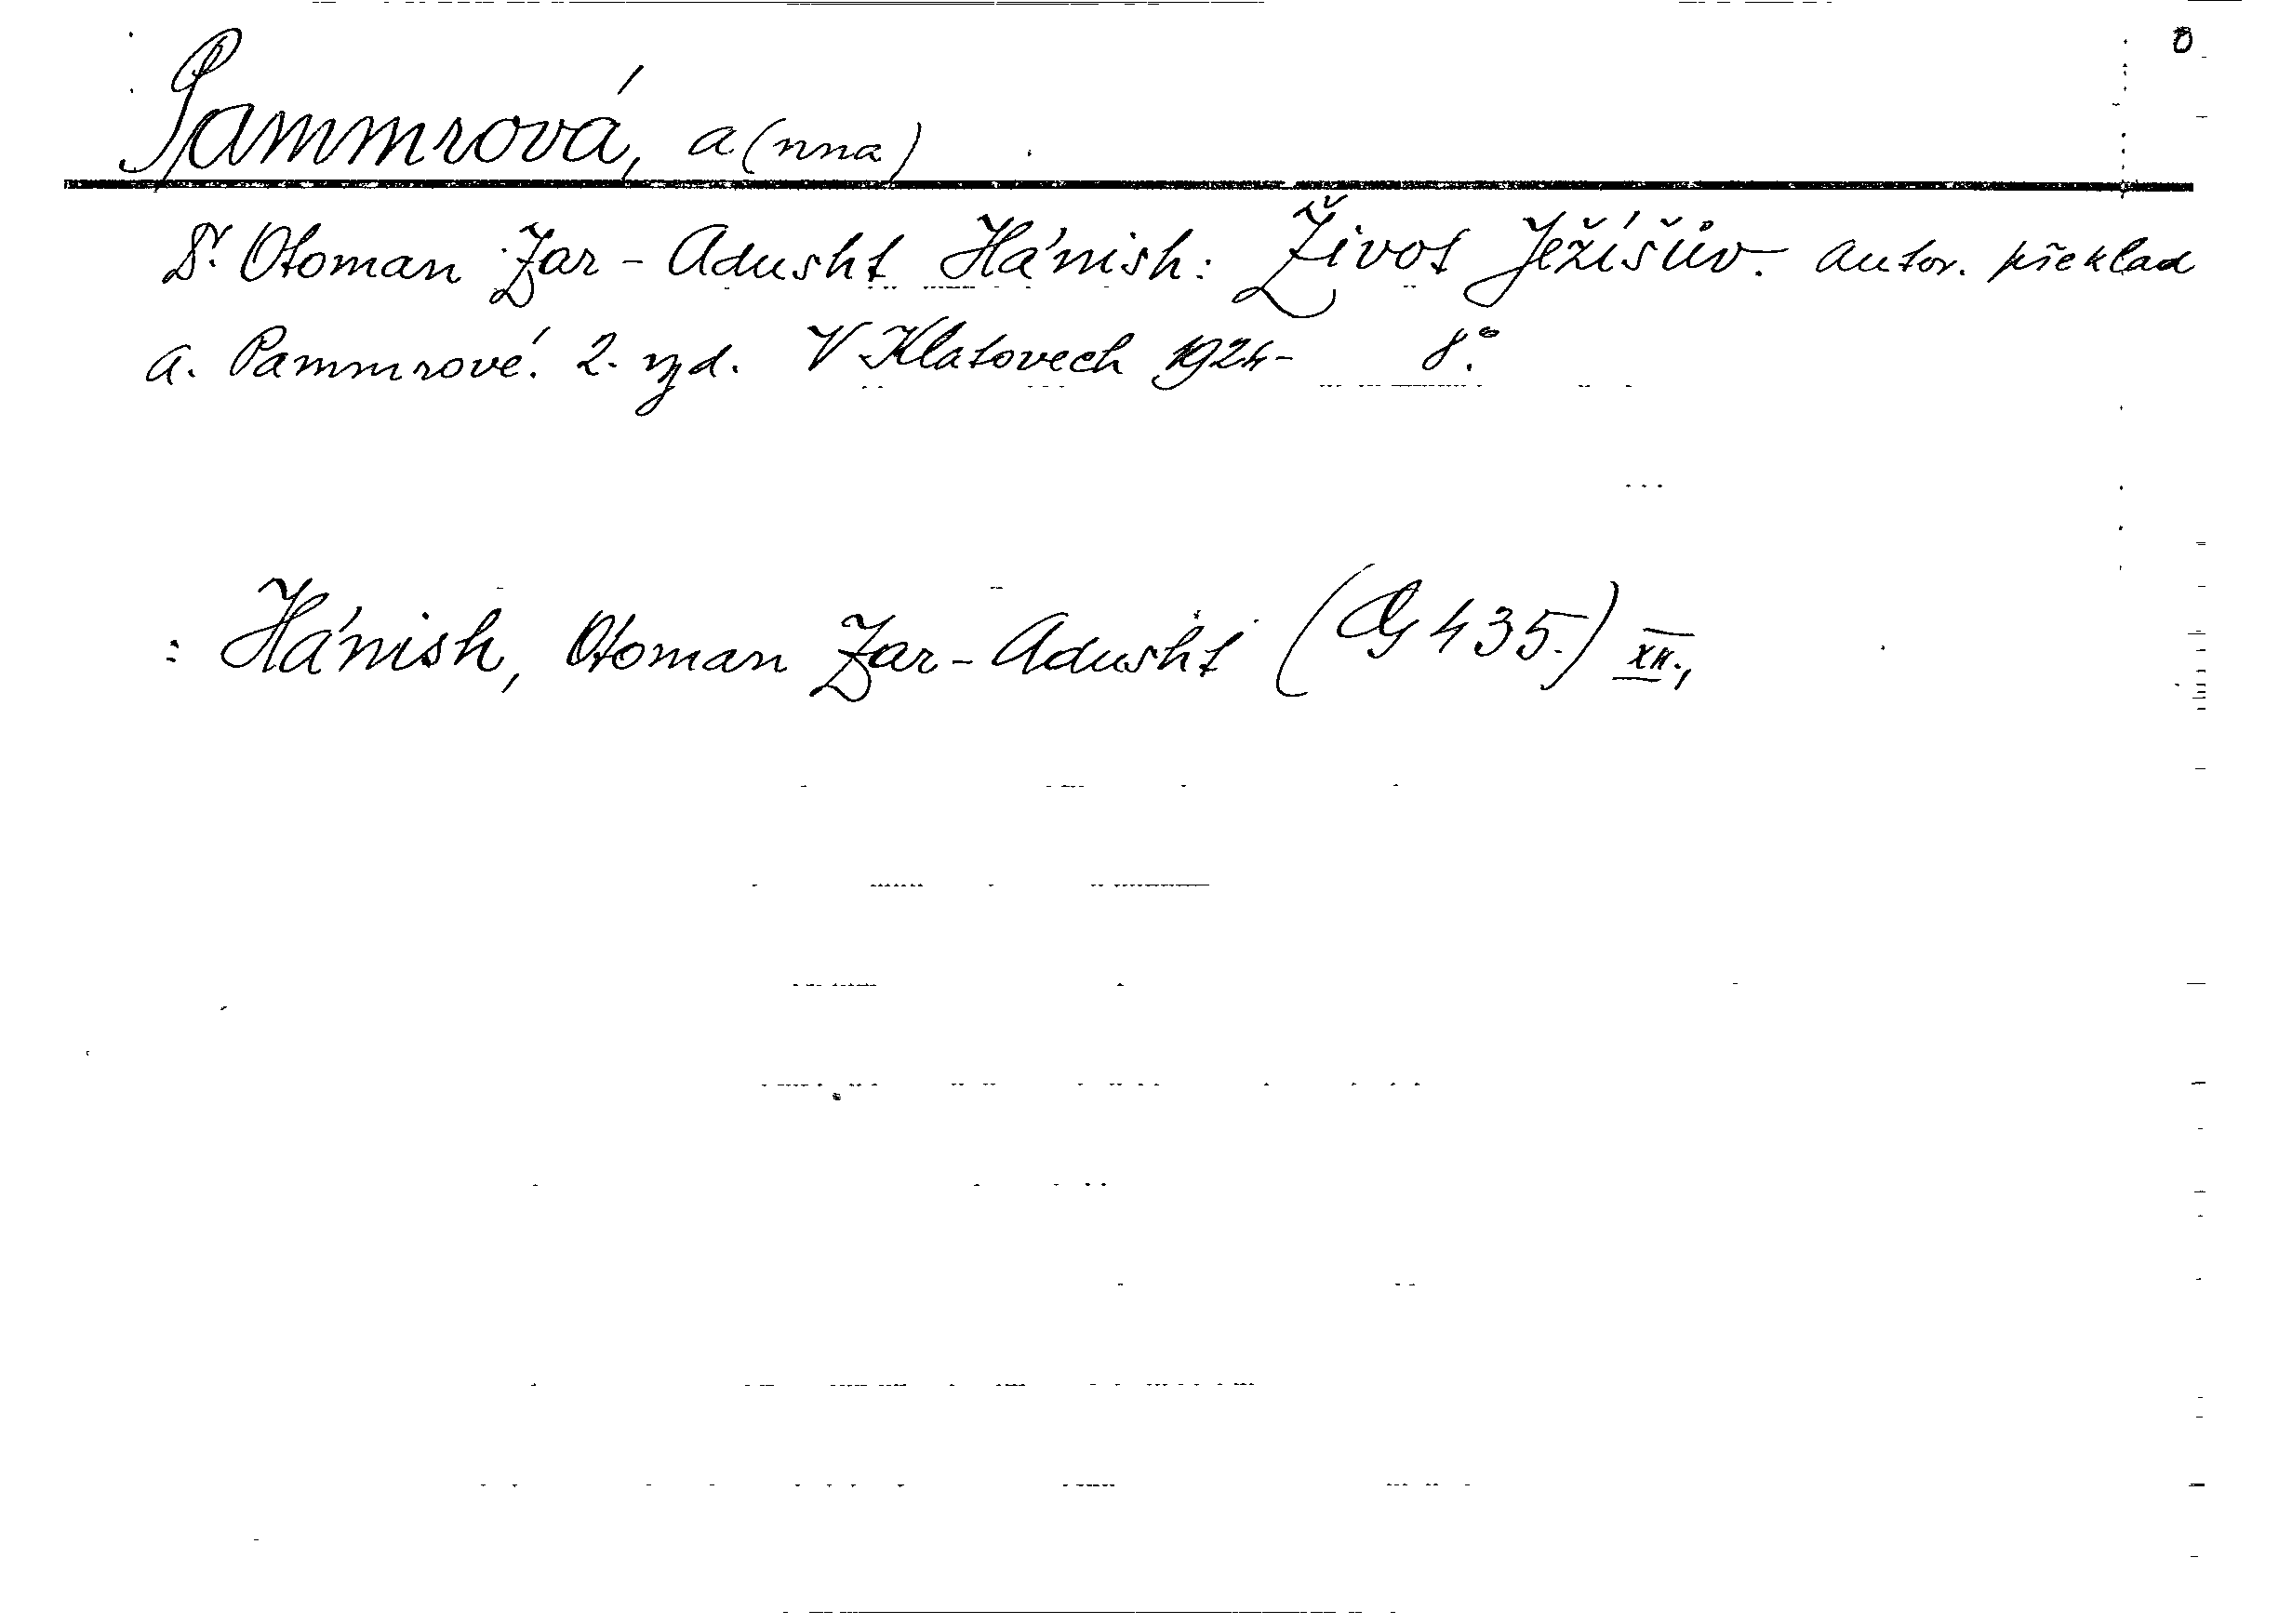 Pammrová, A(nna)
Dr. Otoman Zar-Adusht Há'nish: Život Ježíšův. Autor. překlad
A. Pammrové. 2. vyd. V Klatovech 1924- 8°.
: Há'nish, Otoman Zar-Adusht (Cg 435.) XII.,